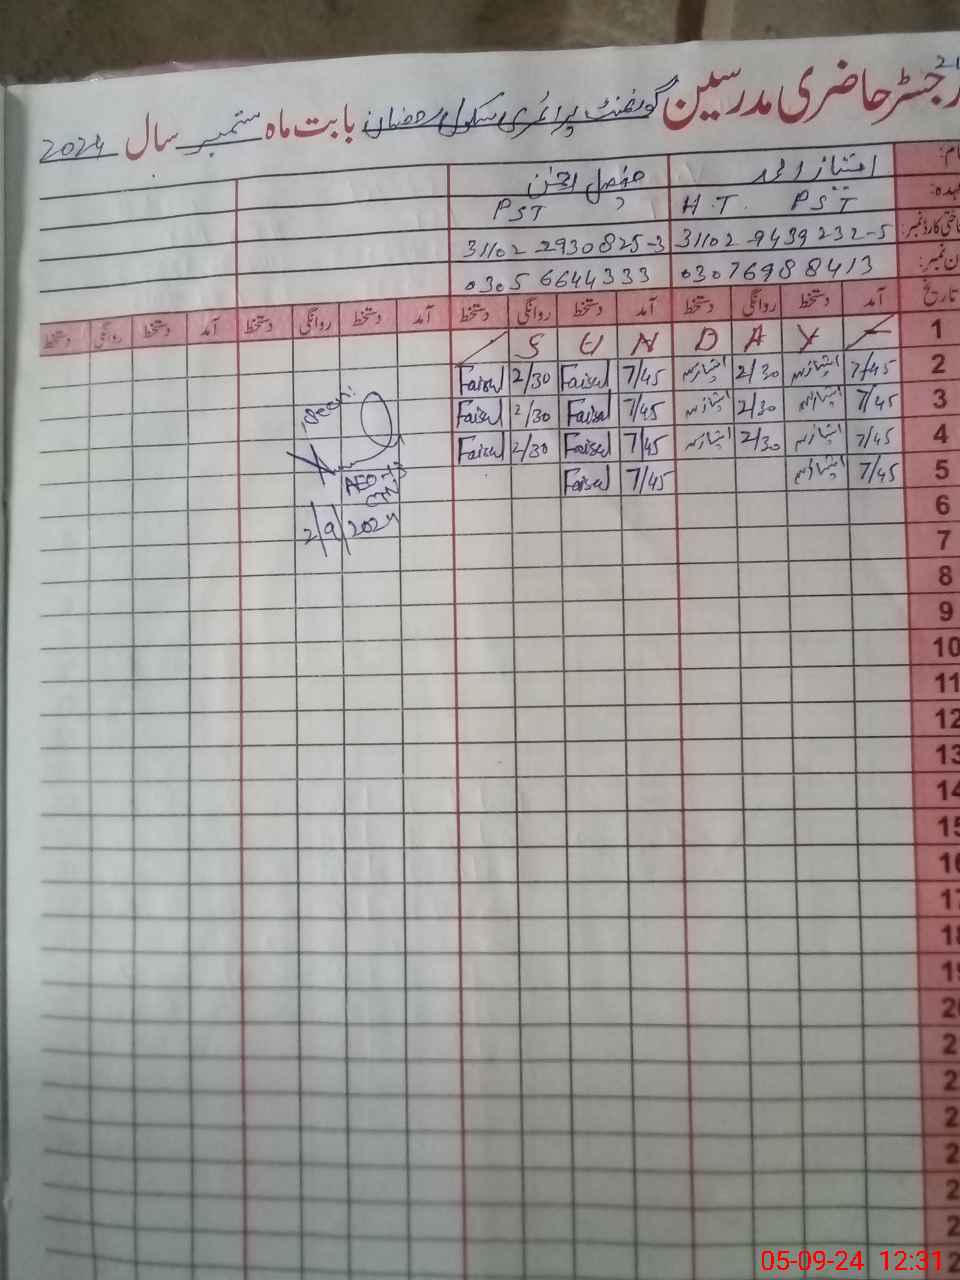 رجسٹر حاضری مدرسین گورنمنٹ پرائمری سکول رمضان بابت ماہ ستمبر سال 2024
امتیاز احمد فیصل
H.T. PST PST
31102 9439232-5 31102 2930825-3
03076988413 03056644333
تاریخ آمد دستخط روانگی دستخط آمد دستخط روانگی دستخط آمد دستخط روانگی دستخط آمد دستخط روانگی دستخط
1 S U N D A Y
2 7/45 امتیاز 2/30 امتیاز 7/45 Faisal 2/30 Faisal
3 7/45 امتیاز 2/30 امتیاز 7/45 Faisal 2/30 Faisal
4 7/45 امتیاز 2/30 امتیاز 7/45 Faisal 2/30 Faisal
5 7/45 امتیاز 7/45 Faisal
AEO
6
2/9/2024
7
8
9
10
11
12
13
14
15
16
17
18
19
05-09-24 12:31